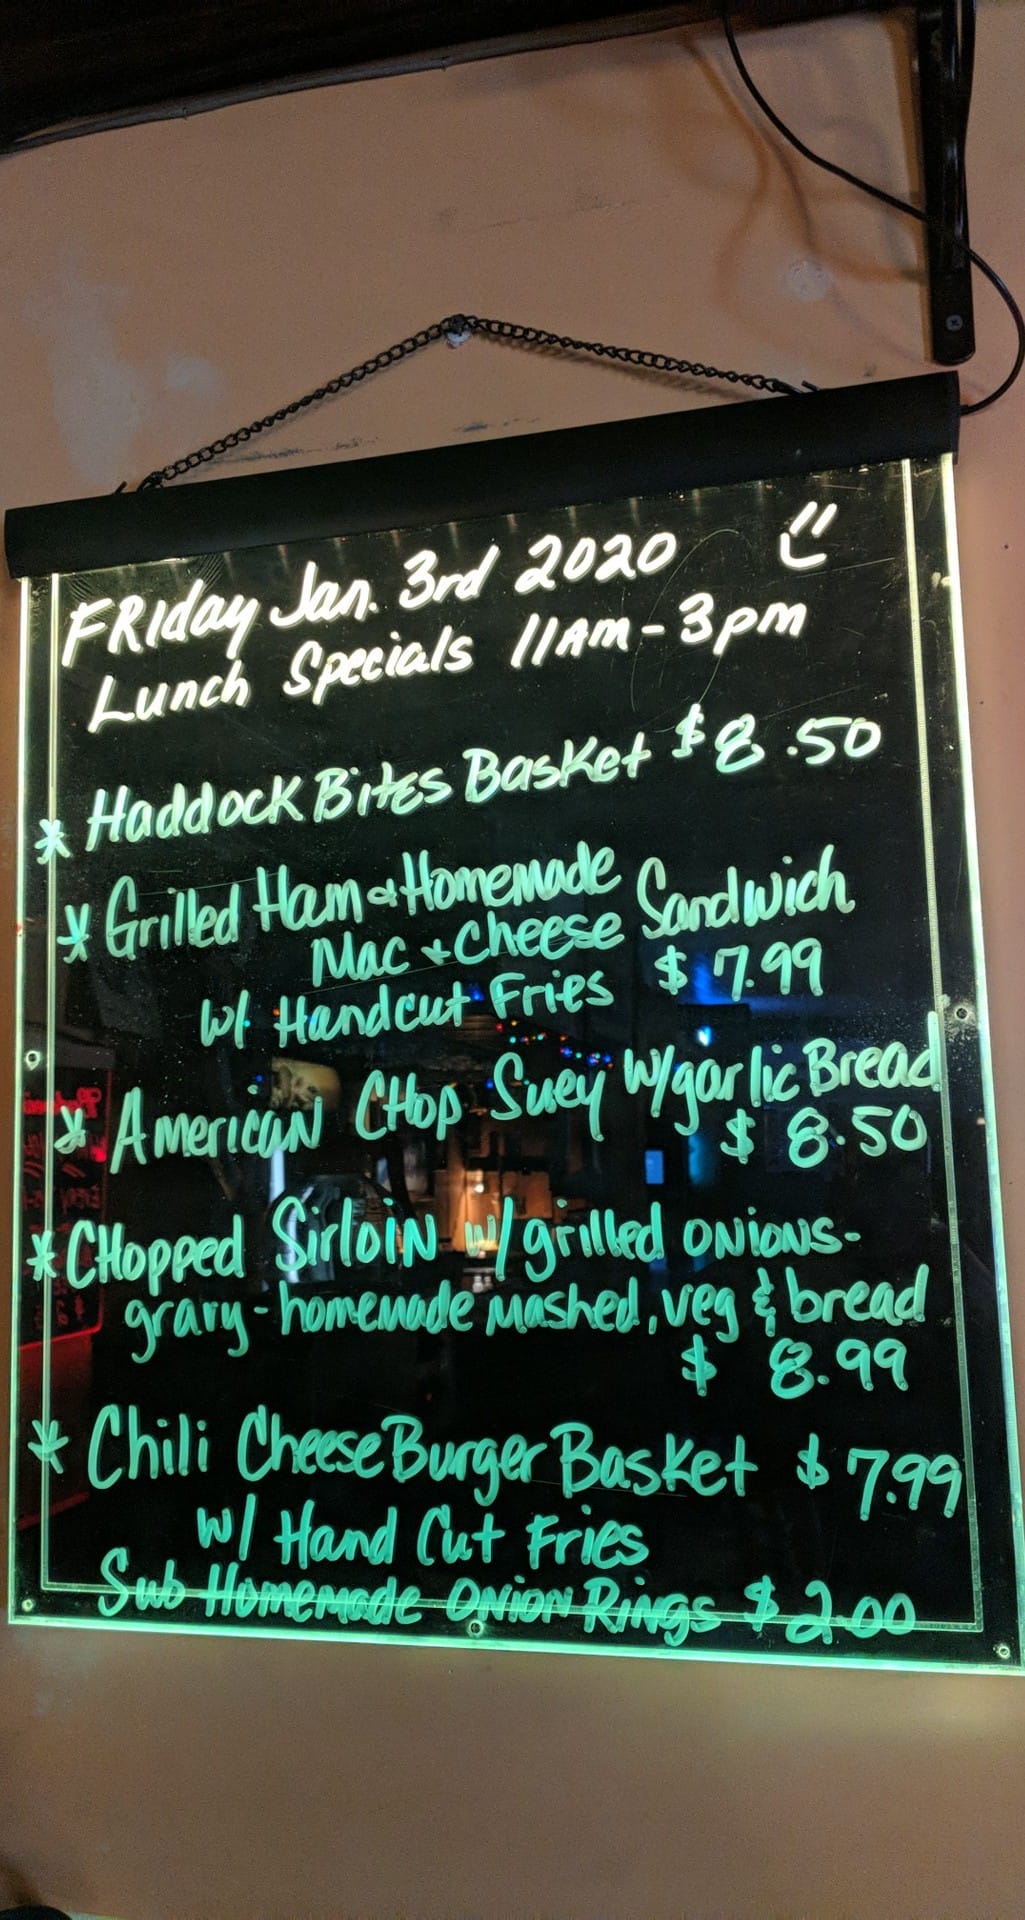 FRIday Jan. 3rd 2020
Lunch Specials 11AM-3pm
* Haddock Bites Basket $8.50
* Grilled Ham & Homemade
Mac & Cheese Sandwich
w/ Handcut Fries $7.99
* American CHop Suey w/garlic Bread
$8.50
* CHopped SirloiN w/grilled ONIONS-
gravy-homemade mashed, veg & bread
$8.99
* Chili Cheese Burger Basket $7.99
w/ Hand Cut Fries
Sub Homemade ONion Rings $2.00